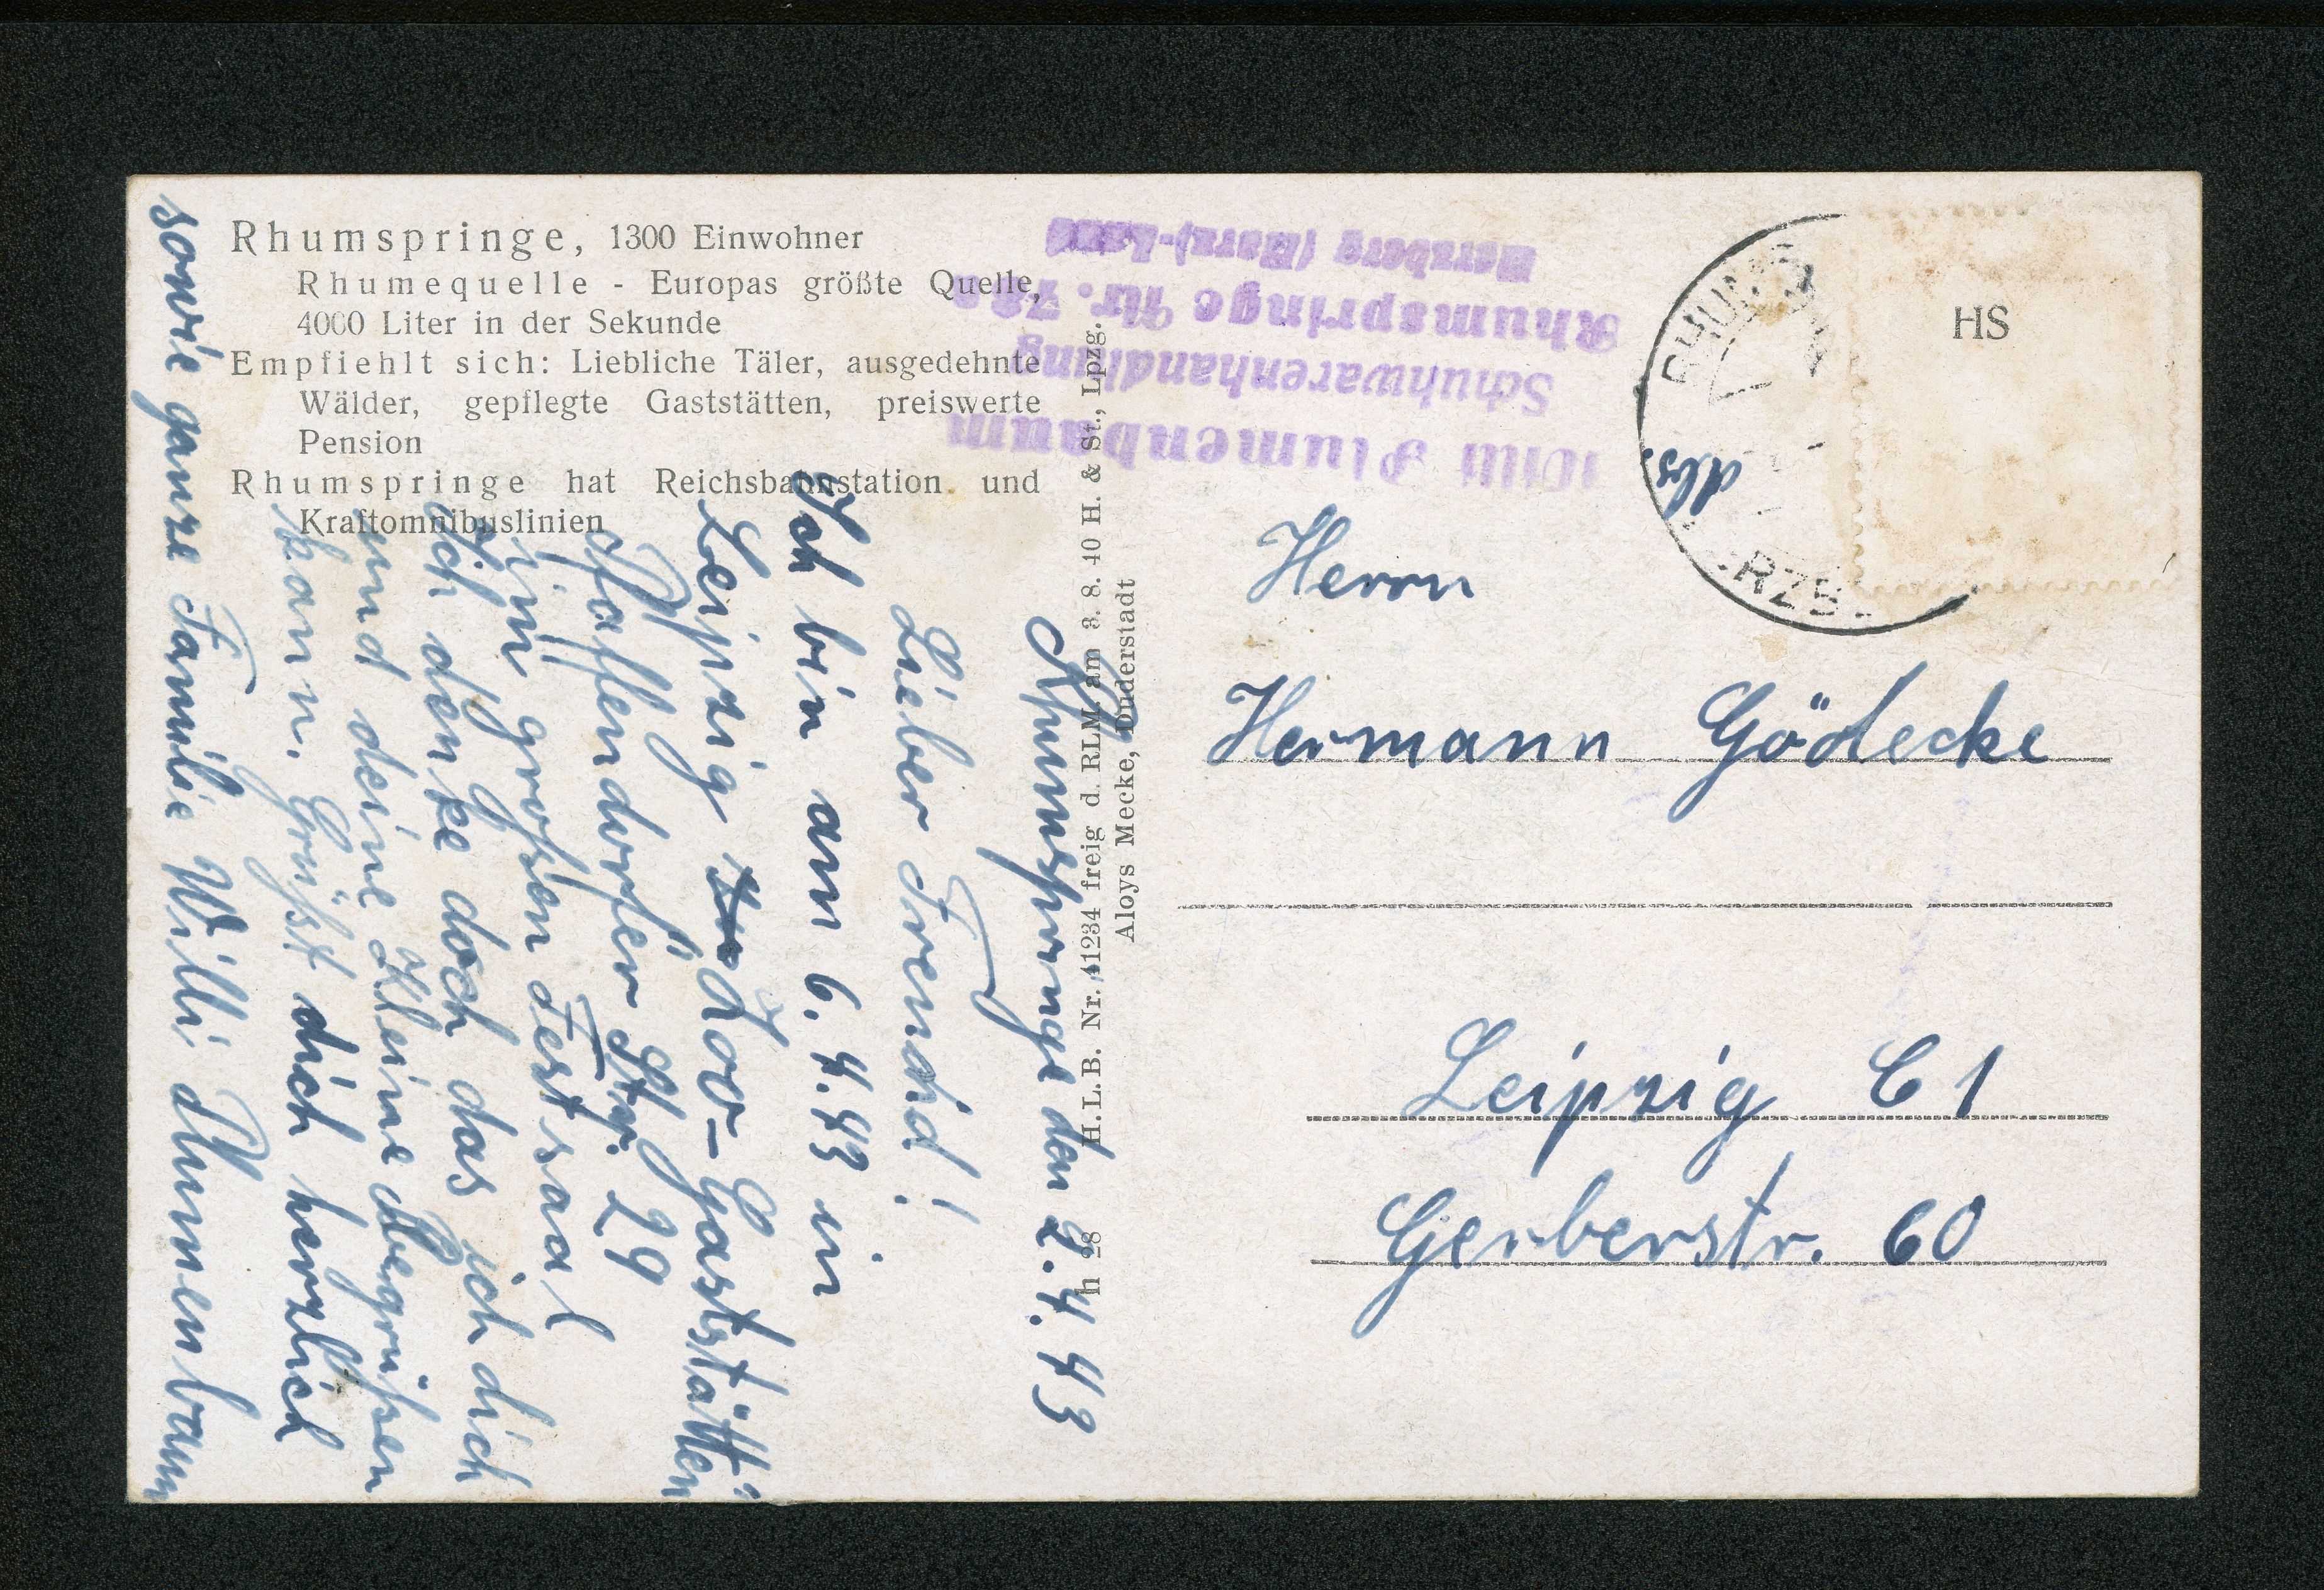 Rhumspringe, 1300 Einwohner
Rhumequelle - Europas größte Quelle,
4000 Liter in der Sekunde
Empfiehlt sich: Liebliche Täler, ausgedehnte
Wälder, gepflegte Gaststätten, preiswerte
Pension
Rhumspringe hat Reichsbahnstation und
Kraftomnibuslinien
Rhumspringe den 2.4.43
Lieber Freund!
Ich bin am 6.4.43 in
Leipzig Zoo-Gaststätten
Pfaffendorfer Str. 29
im großen Festsaal
ich denke doch das ich dich
und deine Kleine begrüßen
kann. Grüßt dich herzlich
sowie ganze Familie Willi Blumenbaum
h 28 H.L.B. Nr. 41234 freig d. RLM. am 3. 8. 40 H. & St., Lpzg.
Aloys Mecke, Duderstadt
Willi Blumenbaum
Schuhwarenhandlung
Rhumspringe Nr. 78a
Herzberg (Harz)-Land
Abs.
HS
Herrn
Hermann Gödecke
Leipzig C 1
Gerberstr. 60